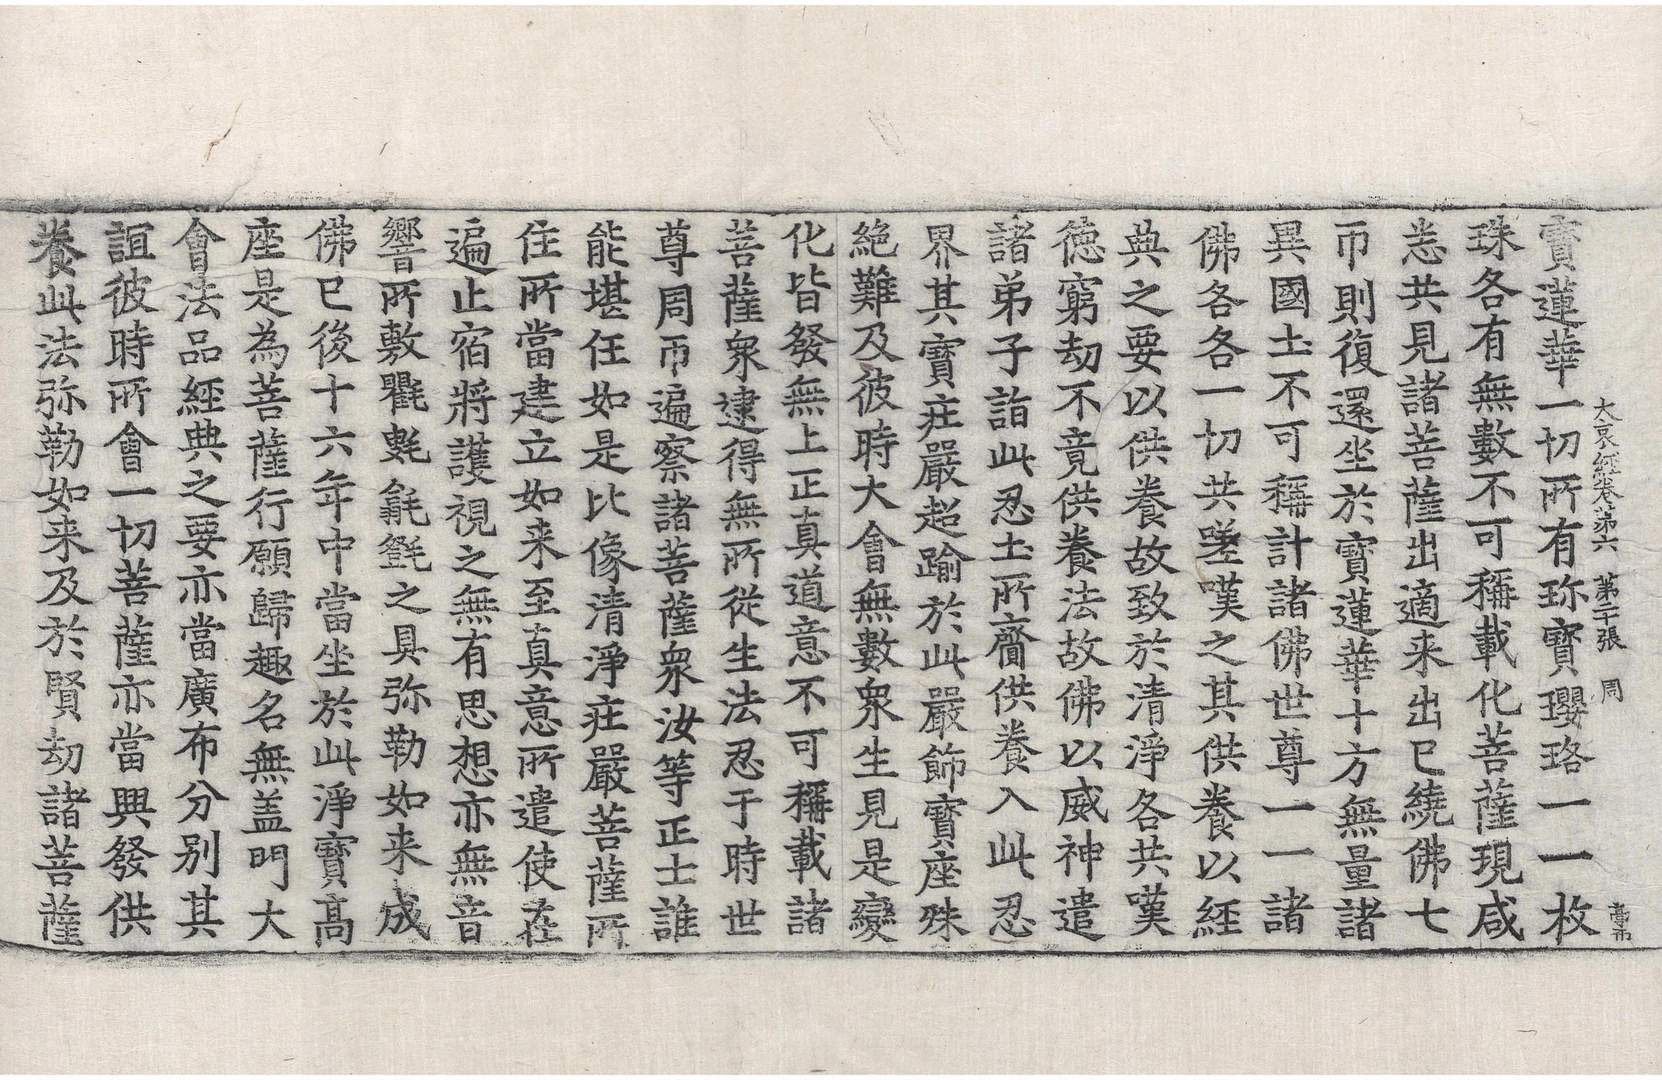 大哀經卷第六 第二十張 周
寶蓮華一切所有珎寶瓔珞一一枚
珠各有無數不可稱載化菩薩現咸
悉共見諸菩薩出適来出已繞佛七
帀則復還坐於寶蓮華十方無量諸
異國土不可稱計諸佛世尊一一諸
佛各各一切共嗟嘆之其供養以經
典之要以供養故致於清淨各共嘆
德窮劫不竟供養法故佛以威神遣
諸弟子詣此忍土所齎供養入此忍
界其寶莊嚴超踰於此嚴飾寶座殊
絶難及彼時大會無數衆生見是變
化皆發無上正真道意不可稱載諸
菩薩衆逮得無所從生法忍于時世
尊周帀遍察諸菩薩衆汝等正士誰
能堪任如是比像清淨莊嚴菩薩所
住所當建立如来至真意所遣使在
遍止宿將護視之無有思想亦無音
響所敷氍毹毾㲪之具弥勒如来成
佛已後十六年中當坐於此淨寶高
座是為菩薩行願歸趣名無盖門大
會法品經典之要亦當廣布分别其
誼彼時所會一切菩薩亦當興發供
養此法弥勒如来及於賢劫諸菩薩